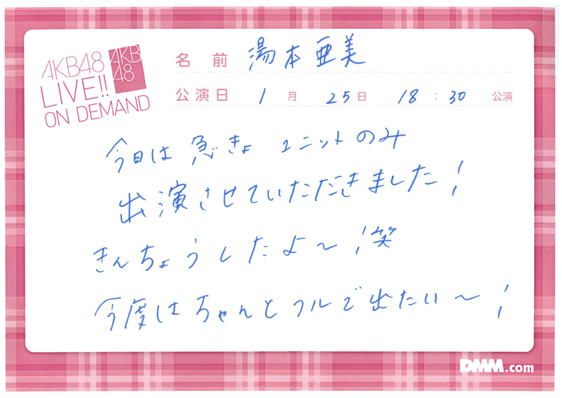 AKB48
LIVE!!
ON DEMAND
AKB
48
名前 湯本亜美
公演日 1月 25日 18:30 公演
今日は急きょユニットのみ
出演させていただきました!
きんちょうしたよ〜!笑
今度はちゃんとフルで出たい〜!
DMM.com